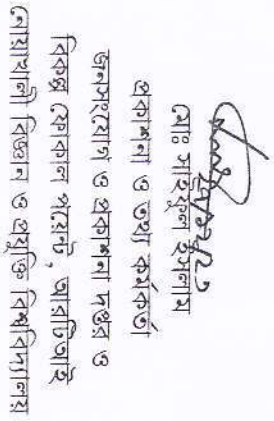 মোঃ সাইফুল ইসলাম
প্রকাশনা ও তথ্য কর্মকর্তা
জনসংযোগ ও প্রকাশনা দপ্তর ও
বিকল্প ফোকাল পয়েন্ট, আরটিআই
নোয়াখালী বিজ্ঞান ও প্রযুক্তি বিশ্ববিদ্যালয়